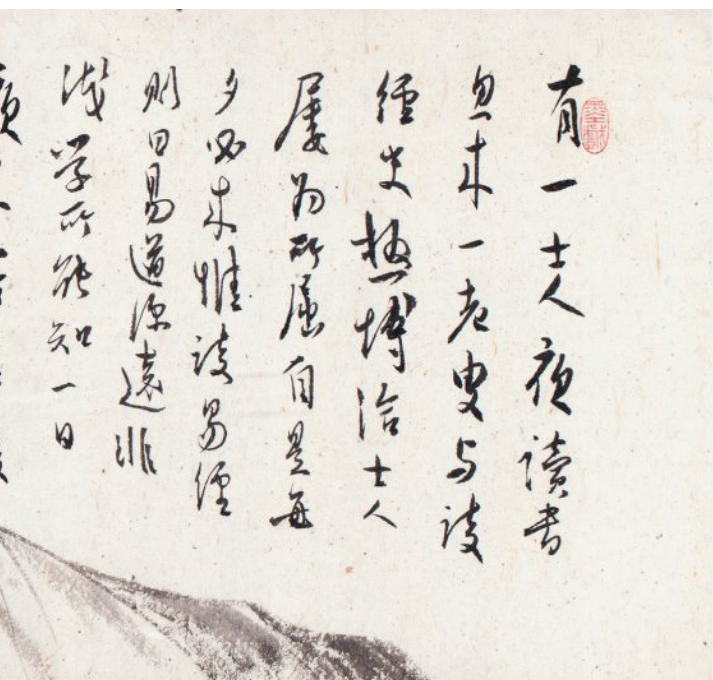 有一士人夜讀書
忽来一老叟与談
經史極博洽士人
屡为所屈自是每
夕必来惟談易經
則曰易道深遠非
浅学所能知一日